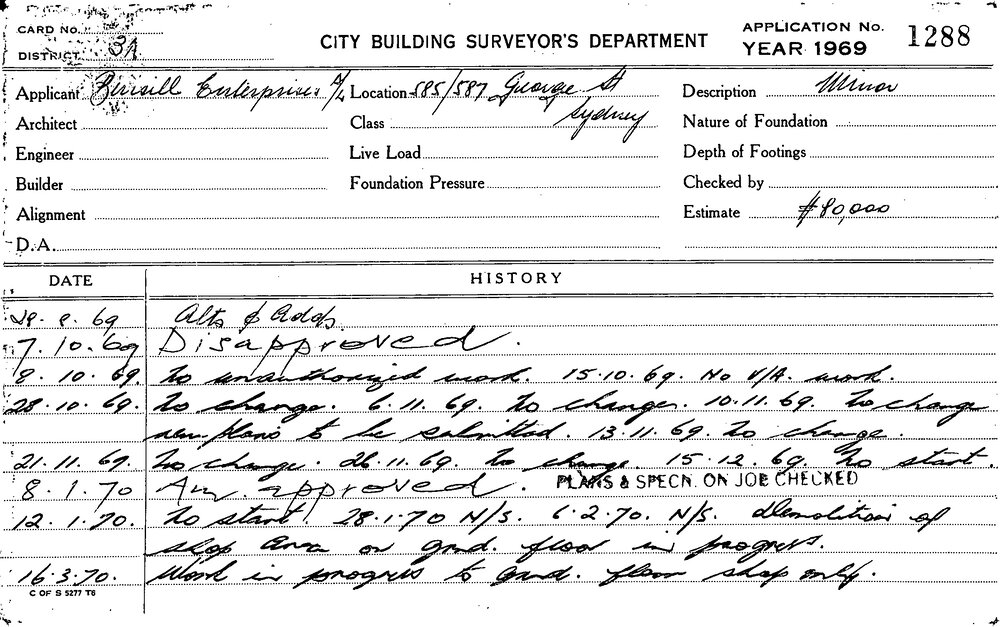 CARD No.
DISTRICT 3A
CITY BUILDING SURVEYOR'S DEPARTMENT
APPLICATION No. 1288
YEAR 1969
Applicant Enterprises P/L Location 585/587 George St Sydney Description Minor
Architect Class Nature of Foundation
Engineer Live Load Depth of Footings
Builder Foundation Pressure Checked by
Alignment Estimate $80,000
D.A.
DATE HISTORY
69 Alts & Adds.
7.10.69 Disapproved.
8.10.69. No unauthorized work. 15.10.69. No V/A. work.
28.10.69. No change. 6.11.69. No change. 10.11.69. No change
new plans to be submitted. 13.11.69. No change.
21.11.69. No change. 26.11.69. No change. 15.12.69. No start.
8.1.70 Am. approved. PLANS & SPECN. ON JOB CHECKED
12.1.70. No start. 28.1.70 N/S. 6.2.70. N/S. Demolition of
shop area on grnd. floor in progress.
16.3.70. Work in progress to grnd. floor shop only.
C OF S 5277 T6